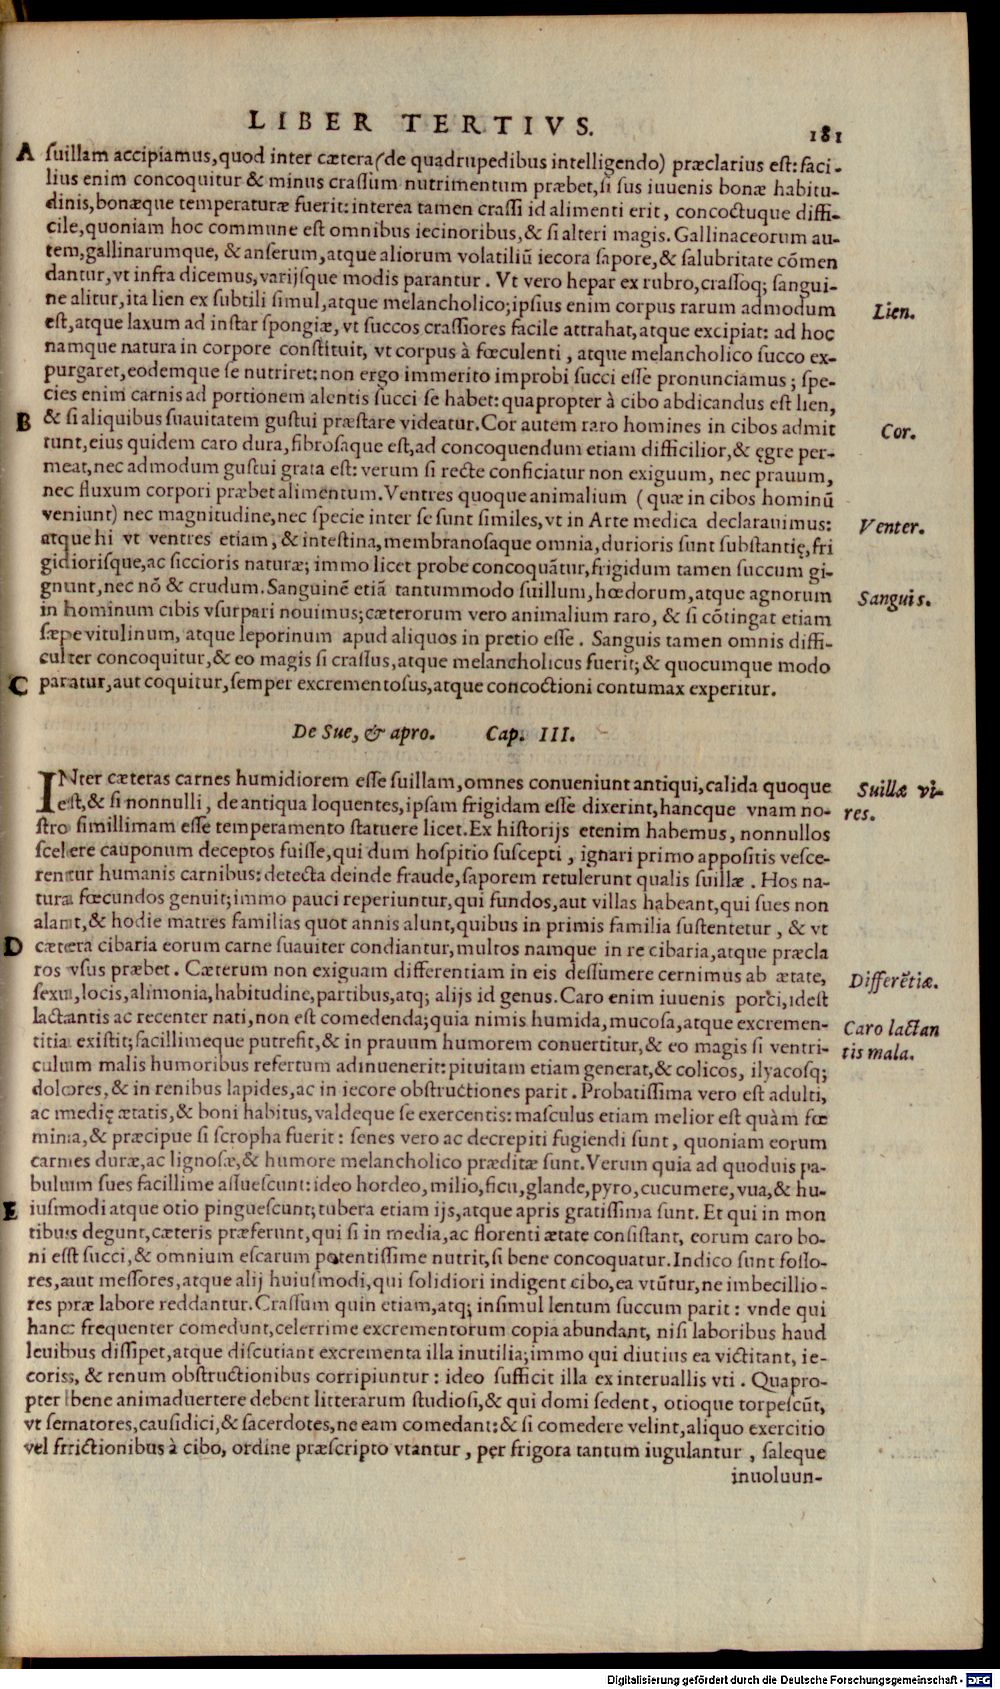 LIBER TERTIVS. 181
A ſuillam accipiamus, quod inter cætera (de quadrupedibus intelligendo) præclarius eſt: faci-
lius enim concoquitur & minus craſſum nutrimentum præbet, ſi ſus iuuenis bonæ habitu-
dinis, bonæque temperaturæ fuerit: interea tamen craſſi id alimenti erit, concoctuque diffi-
cile, quoniam hoc commune eſt omnibus iecinoribus, & ſi alteri magis. Gallinaceorum au-
tem, gallinarumque, & anſerum, atque aliorum volatiliũ iecora ſapore, & ſalubritate cõmen
dantur, vt infra dicemus, varijſque modis parantur. Vt vero hepar ex rubro, craſſoq; ſangui-
ne alitur, ita lien ex ſubtili ſimul, atque melancholico; ipſius enim corpus rarum admodum
Lien.
eſt, atque laxum ad inſtar ſpongiæ, vt ſuccos craſſiores facile attrahat, atque excipiat: ad hoc
namque natura in corpore conſtituit, vt corpus à fœculenti, atque melancholico ſucco ex-
purgaret, eodemque ſe nutriret: non ergo immerito improbi ſucci eſſe pronunciamus; ſpe-
cies enim carnis ad portionem alentis ſucci ſe habet: quapropter à cibo abdicandus eſt lien,
B & ſi aliquibus ſuauitatem guſtui præſtare videatur. Cor autem raro homines in cibos admit
Cor.
tunt, eius quidem caro dura, fibroſaque eſt, ad concoquendum etiam difficilior, & ęgre per-
meat, nec admodum guſtui grata eſt: verum ſi recte conficiatur non exiguum, nec prauum,
nec fluxum corpori præbet alimentum. Ventres quoque animalium (quæ in cibos hominũ
veniunt) nec magnitudine, nec ſpecie inter ſe ſunt ſimiles, vt in Arte medica declarauimus:
Venter.
atque hi vt ventres etiam, & inteſtina, membranoſaque omnia, durioris ſunt ſubſtantię, fri
gidiorisque, ac ſiccioris naturæ; immo licet probe concoquãtur, frigidum tamen ſuccum gi-
gnunt, nec nõ & crudum. Sanguinẽ etiã tantummodo ſuillum, hœdorum, atque agnorum
Sanguis.
in hominum cibis vſurpari nouimus; cæterorum vero animalium raro, & ſi cõtingat etiam
ſæpe vitulinum, atque leporinum apud aliquos in pretio eſſe. Sanguis tamen omnis diffi-
culter concoquitur, & eo magis ſi craſſus, atque melancholicus fuerit; & quocumque modo
C paratur, aut coquitur, ſemper excrementoſus, atque concoctioni contumax experitur.
De Sue, & apro. Cap. III.
INter cæteras carnes humidiorem eſſe ſuillam, omnes conueniunt antiqui, calida quoque
Suillæ vi-
eſt, & ſi nonnulli, de antiqua loquentes, ipſam frigidam eſſe dixerint, hancque vnam no-
res.
ſtro ſimillimam eſſe temperamento ſtatuere licet. Ex hiſtorijs etenim habemus, nonnullos
ſcelere cauponum deceptos fuiſſe, qui dum hoſpitio ſuſcepti, ignari primo appoſitis veſce-
rentur humanis carnibus: detecta deinde fraude, ſaporem retulerunt qualis ſuillæ. Hos na-
tura fœcundos genuit; immo pauci reperiuntur, qui fundos, aut villas habeant, qui ſues non
alant, & hodie matres familias quot annis alunt, quibus in primis familia ſuſtentetur, & vt
D cætera cibaria eorum carne ſuauiter condiantur, multos namque in re cibaria, atque præcla
ros vſus præbet. Cæterum non exiguam differentiam in eis deſſumere cernimus ab ætate,
Differẽtiæ.
ſexu, locis, alimonia, habitudine, partibus, atq; alijs id genus. Caro enim iuuenis porci, ideſt
lactantis ac recenter nati, non eſt comedenda; quia nimis humida, mucoſa, atque excremen-
Caro lactan
titia exiſtit; facillimeque putrefit, & in prauum humorem conuertitur, & eo magis ſi ventri-
tis mala.
culum malis humoribus refertum adinuenerit: pituitam etiam generat, & colicos, ilyacoſq;
dolores, & in renibus lapides, ac in iecore obſtructiones parit. Probatiſſima vero eſt adulti,
ac medię ætatis, & boni habitus, valdeque ſe exercentis: maſculus etiam melior eſt quàm fœ
mina, & præcipue ſi ſcropha fuerit: ſenes vero ac decrepiti fugiendi ſunt, quoniam eorum
carnes duræ, ac lignoſæ, & humore melancholico præditæ ſunt. Verum quia ad quoduis pa-
bulum ſues facillime aſſueſcunt: ideo hordeo, milio, ficu, glande, pyro, cucumere, vua, & hu-
E iuſmodi atque otio pingueſcunt; tubera etiam ijs, atque apris gratiſſima ſunt. Et qui in mon
tibus degunt, cæteris præferunt, qui ſi in media, ac florenti ætate conſiſtant, eorum caro bo-
ni eſt ſucci, & omnium eſcarum potentiſſime nutrit, ſi bene concoquatur. Indico ſunt foſſo-
res, aut meſſores, atque alij huiuſmodi, qui ſolidiori indigent cibo, ea vtũtur, ne imbecillio-
res præ labore reddantur. Craſſum quin etiam, atq; inſimul lentum ſuccum parit: vnde qui
hanc frequenter comedunt, celerrime excrementorum copia abundant, niſi laboribus haud
leuibus diſſipet, atque diſcutiant excrementa illa inutilia; immo qui diutius ea victitant, ie-
coris, & renum obſtructionibus corripiuntur: ideo ſufficit illa ex interuallis vti. Quapro-
pter bene animaduertere debent litterarum ſtudioſi, & qui domi ſedent, otioque torpeſcũt,
vt ſernatores, cauſidici, & ſacerdotes, ne eam comedant: & ſi comedere velint, aliquo exercitio
vel frictionibus à cibo, ordine præſcripto vtantur, per frigora tantum iugulantur, ſaleque
inuoluun-
Digitalisierung gefördert durch die Deutsche Forschungsgemeinschaft - DFG